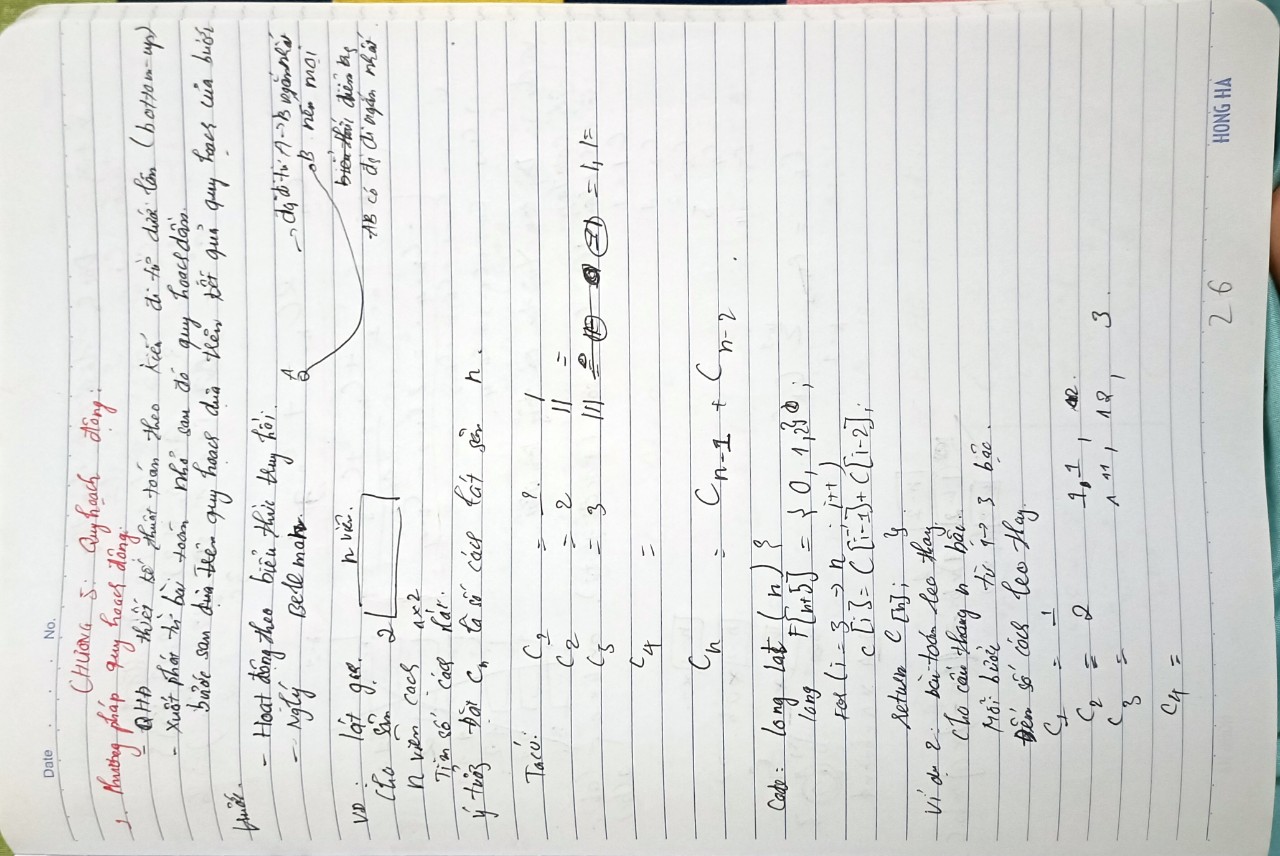 Date . . . No.
CHƯƠNG 5: Quy hoạch động:
1. Phương pháp quy hoạch động:
- QHĐ thiết kế thuật toán theo kiểu đi từ dưới lên (bottom-up)
- Xuất phát từ bài toán nhỏ sau đó quy hoạch dần.
bước sau dựa trên quy hoạch dựa trên kết quả quy hoạch của bước
trước.
- Hoạt động theo biểu thức truy hồi.
- Ng lý Bellman.
A
→ đg đi từ A → B ngắn nhất
B nên mọi
biểu thức điểm trg
AB có đg đi ngắn nhất.
VD: lát gạch. n viên.
Cho sân 2
n viên gạch 1×2
Tìm số cách lát.
ý tưởng Đặt Cn là số cách lát sân n.
Ta có: C1 = 1. |
C2 = 2 || =
C3 = 3 ||| = |, |=
C4 =
Cn = Cn-1 + Cn-2.
Code: long lat (n) {
long F[n+5] = { 0, 1, 2};
For (i = 3 → n ; i++)
C[i] = C[i-1] + C[i-2];
return C[n]; }
Ví dụ 2: bài toán leo thang
Cho cầu thang n bậc.
Mỗi bước từ 1 → 3 bậc.
Đếm số cách leo thang.
C1 = 1
C2 = 2 1,1, 2.
C3 = 1 11, 12, 3.
C4 =
26
HONG HA